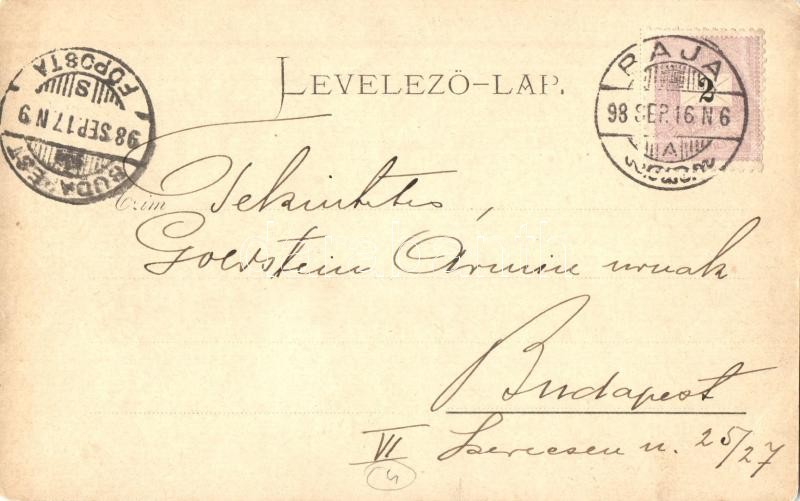 BUDAPEST
98 SEP. 17 N 9
S
FŐPOSTA
LEVELEZŐ-LAP.
BAJA
98 SEP. 16 N 6
A
2
Czím Tekintetes,
Goldstein Ármin urnak
Budapest
VI Szerecsen u. 25/27
4